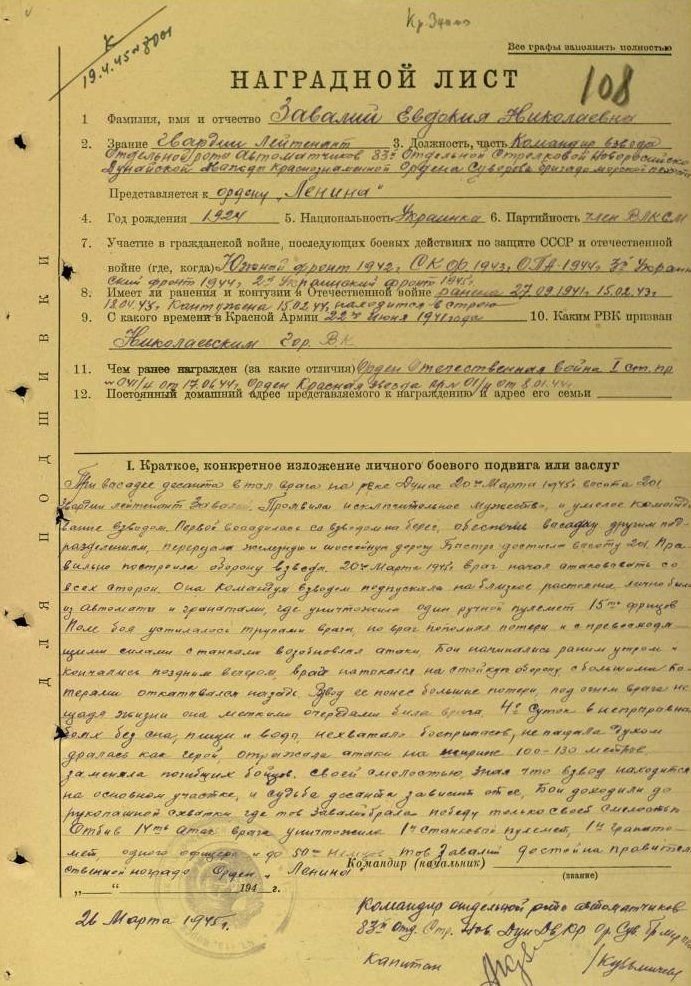 Кр Знамя
К
19.4.45
Все графы заполнять полностью
НАГРАДНОЙ ЛИСТ
108
1 Фамилия, имя и отчество Завалий Евдокия Николаевна
2. Звание Гвардии Лейтенант 3. Должность, часть Командир взвода
Отдельной роты Автоматчиков 83й Отдельной Стрелковой Новороссийско
Дунайской Дважды Краснознаменной Ордена Суворова бригады морской пехоты
Представляется к ордену „Ленина"
4. Год рождения 1924 5. Национальность Украинка 6. Партийность член ВЛКСМ
7. Участие в гражданской войне, последующих боевых действиях по защите СССР и отечественной
войне (где, когда) Южный фронт 1942г. СКФ 1943г. ОПА 1944г. 3й Украин
ский фронт 1944г. 2й Украинский фронт 1945г.
8. Имеет ли ранения и контузии в Отечественной войне ранена 27.09.1941г. 15.02.43г.
Контужена 15.02.44. находится в строю
9. С какого времени в Красной Армии 22го июня 1941 года 10. Каким РВК призван
Николаевским гор. ВК
11. Чем ранее награжден (за какие отличия) Орден Отечественная война I ст. пр
№ 041/н от 17.06.44г. Орден Красная звезда пр. № 01/н от 8.01.44г.
12. Постоянный домашний адрес представляемого к награждению и адрес его семьи
ДЛЯ ПОДШИВКИ
I. Краткое, конкретное изложение личного боевого подвига или заслуг
При высадке десанта в тыл врага на реке Дунае 20го Марта 1945г. высота 201
Гвардии лейтенант Завалий. Проявила исключительное мужество, и умелое командо
вание взводом. Первой высадилась со взводом на берег, обеспечив высадку другим под
разделениям, перерезала железную и шоссейную дорогу быстро достигла высоту 201. Пра
вильно построила оборону взвода. 20го Марта 1945г. враг начал атаковать со
всех сторон. Она командуя взводом подпускала на близкое растояние лично била
из автомата и гранатами, где уничтожила один ручной пулемет 15ть фрицев
Поле боя устилалось трупами врага, но враг пополнял потери и с превосходя-
щими силами с танками возобновлял атаки. Бои начинались рано утром и
кончались поздним вечером, враг натокался на стойкую оборону с большими по
терями откатывался назад. Взвод ее понес большие потери, под огнем врага не
щадя жизни она меткими очередями била врага. 4е Суток в непрерывных
боях без сна, пищи и воды. нехватало боеприпасов, не падала духом
дралась как герой, отражала атаки на 100-130 метров
заменяла погибших бойцов. своей смелостью, зная что взвод находится
на основном участке, и судьба десанта зависит от ее. Бои доходили до
рукопашной схватки, где тов Завалий брала победу только своей смелостью
Отбив 14ть атак врага уничтожила 1н станковый пулемет, 1н гранато-
мет, одного офицера и до 50ти немцев. тов Завалий достойна правитель
ственной награды Орден „Ленина"
Командир (начальник)
(звание)
„___" ____ 194 г.
26 Марта 1945г.
Командир отдельной роты автоматчиков
83й Отд. Стр. Нов. Дун Дв. Кр Ор. Сув. Бр.
капитан /Кузьмичев